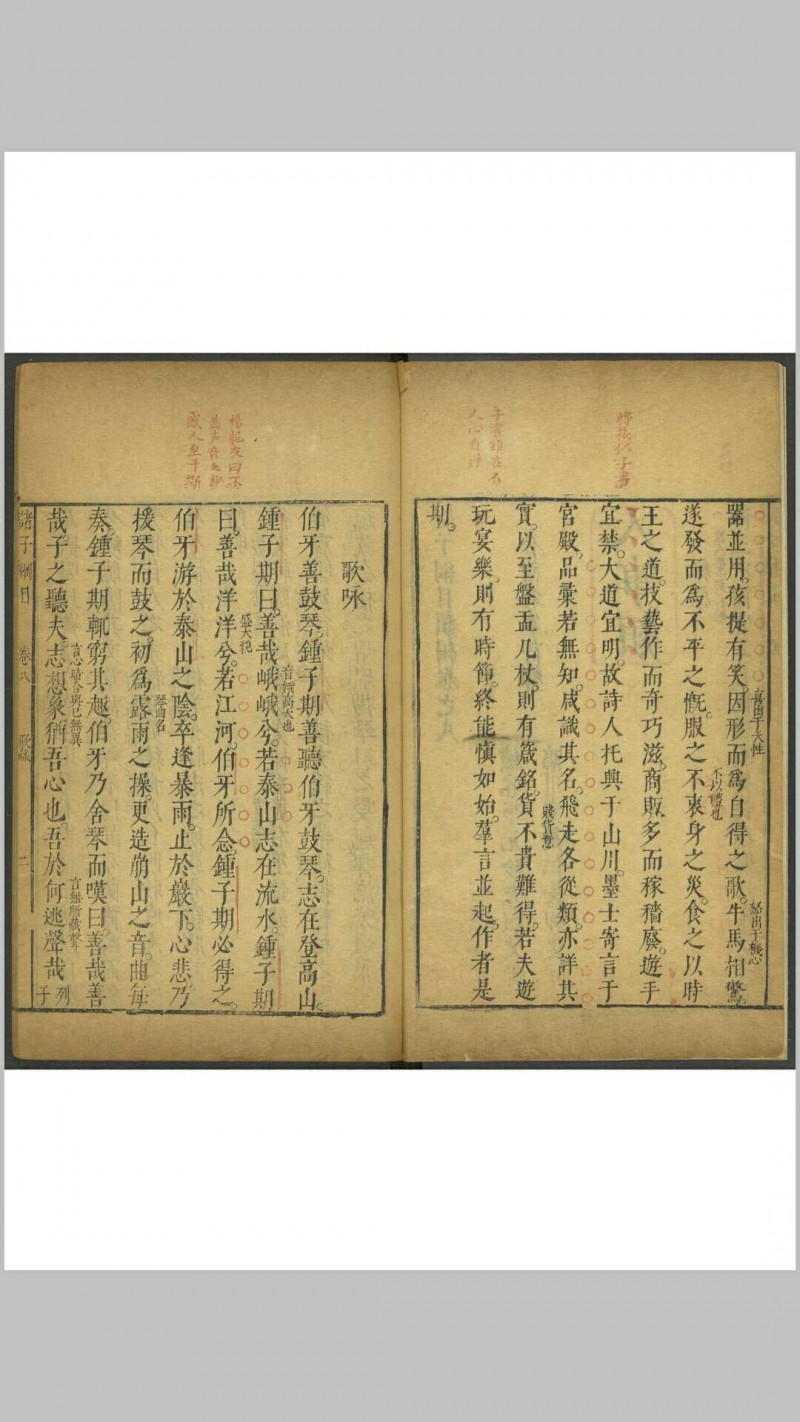 器並用。孩提有笑。因形而爲自得之歌。牛馬相驚。
喜出于天性
怒出于機心
遂發而爲不平之慨。服之不衷身之災。食之以時
不以禮也
王之道。技藝作而奇巧滋。商販多而稼穡廢。遊手
宜禁。大道宜明。故詩人托興于山川。墨士寄言于
宮殿。品彙若無知。咸識其名。飛走各從類。亦詳其
賤貨意
實。以至盤盂几杖。則有箴銘。貨不貴難得。若夫遊
玩宴樂。則有時節。終能愼如始。羣言並起。作者是
期。
歌咏
伯牙善鼓琴。鍾子期善聽。伯牙鼓琴。志在登高山。
鍾子期曰。善哉峨峨兮。若泰山。志在流水。鍾子期
音娥高大也
曰。善哉洋洋兮。若江河。伯牙所念。鍾子期必得之。
盛大貌
伯牙游於泰山之陰。卒逢暴雨。止於巖下。心悲。乃
援琴而鼓之。初爲霖雨之操。更造崩山之音。曲每
琴曲名
奏。鍾子期輒窮其趣。伯牙乃舍琴而嘆曰。善哉善
哉。子之聽夫。志想象猶吾心也。吾於何逃聲哉
言心暗合與己無異
言無所藏聲
列子
諸子綱目 卷八 歌咏 二
楊龍友曰不
感人至于斯